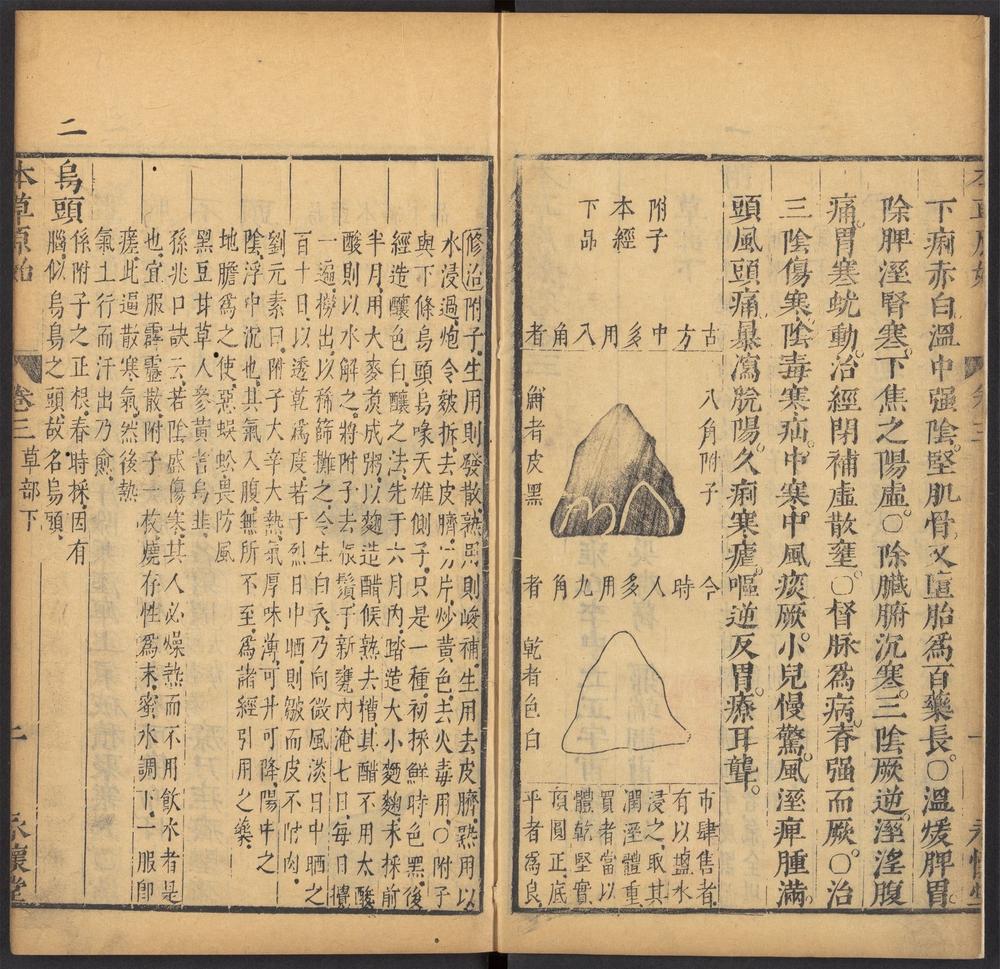 下痢赤白溫中强陰堅肌骨又墮胎爲百藥長○溫煖脾胃
除脾溼腎寒下焦之陽虛○除臟腑沉寒三陰厥逆溼淫腹
痛胃寒蚘動治經閉補虛散壅○督脉爲病脊强而厥○治
三陰傷寒陰毒寒疝中寒中風痰厥小兒慢驚風溼痺腫滿
頭風頭痛暴瀉脫陽久痢寒瘧嘔逆反胃療耳聾
附子
本經
下品
古方中多用八角者
八角附子
觧者皮黑
今時人多用九角者
乾者色白
市肆售者
有以鹽水
浸之取其
潤溼體重
買者當以
體軟堅實
頂圓正底
平者爲良
修治附子生用則發散熟用則峻補生用去皮臍熟用以
水浸過炮令皴拆去皮臍切片炒黃色去火毒用○附子
與下條烏頭烏喙天雄側子只是一種初採鮮時色黑後
經造釀色白釀之法先于六月內踏造大小麵麴未採前
半月用大麥煑成粥以麴造醋候熟去糟其醋不用太酸
酸則以水解之將附子去根鬚于新甕內淹七日每日攪
一遍撈出以稀篩攤之令生白衣乃向微風淡日中晒之
百十日以透乾爲度若于烈日中晒則皺而皮不附肉
劉元素曰附子大辛大熱氣厚味薄可升可降陽中之
陰浮中沉也其氣入腹無所不至爲諸經引用之藥
地膽爲之使惡蜈蚣畏防風
黑豆甘草人參黃耆烏韭
孫兆口訣云若陰盛傷寒其人必燥熱而不用飲水者是
也宜服霹靂散附子一枚燒存性爲末蜜水調下一服卽
瘥此逼散寒氣然後熱
氣土行而汗出乃愈
烏頭
係附子之正根春時採因有
腦似烏鳥之頭故名烏頭
二
本草原始
卷三
草部下
二
永懷堂